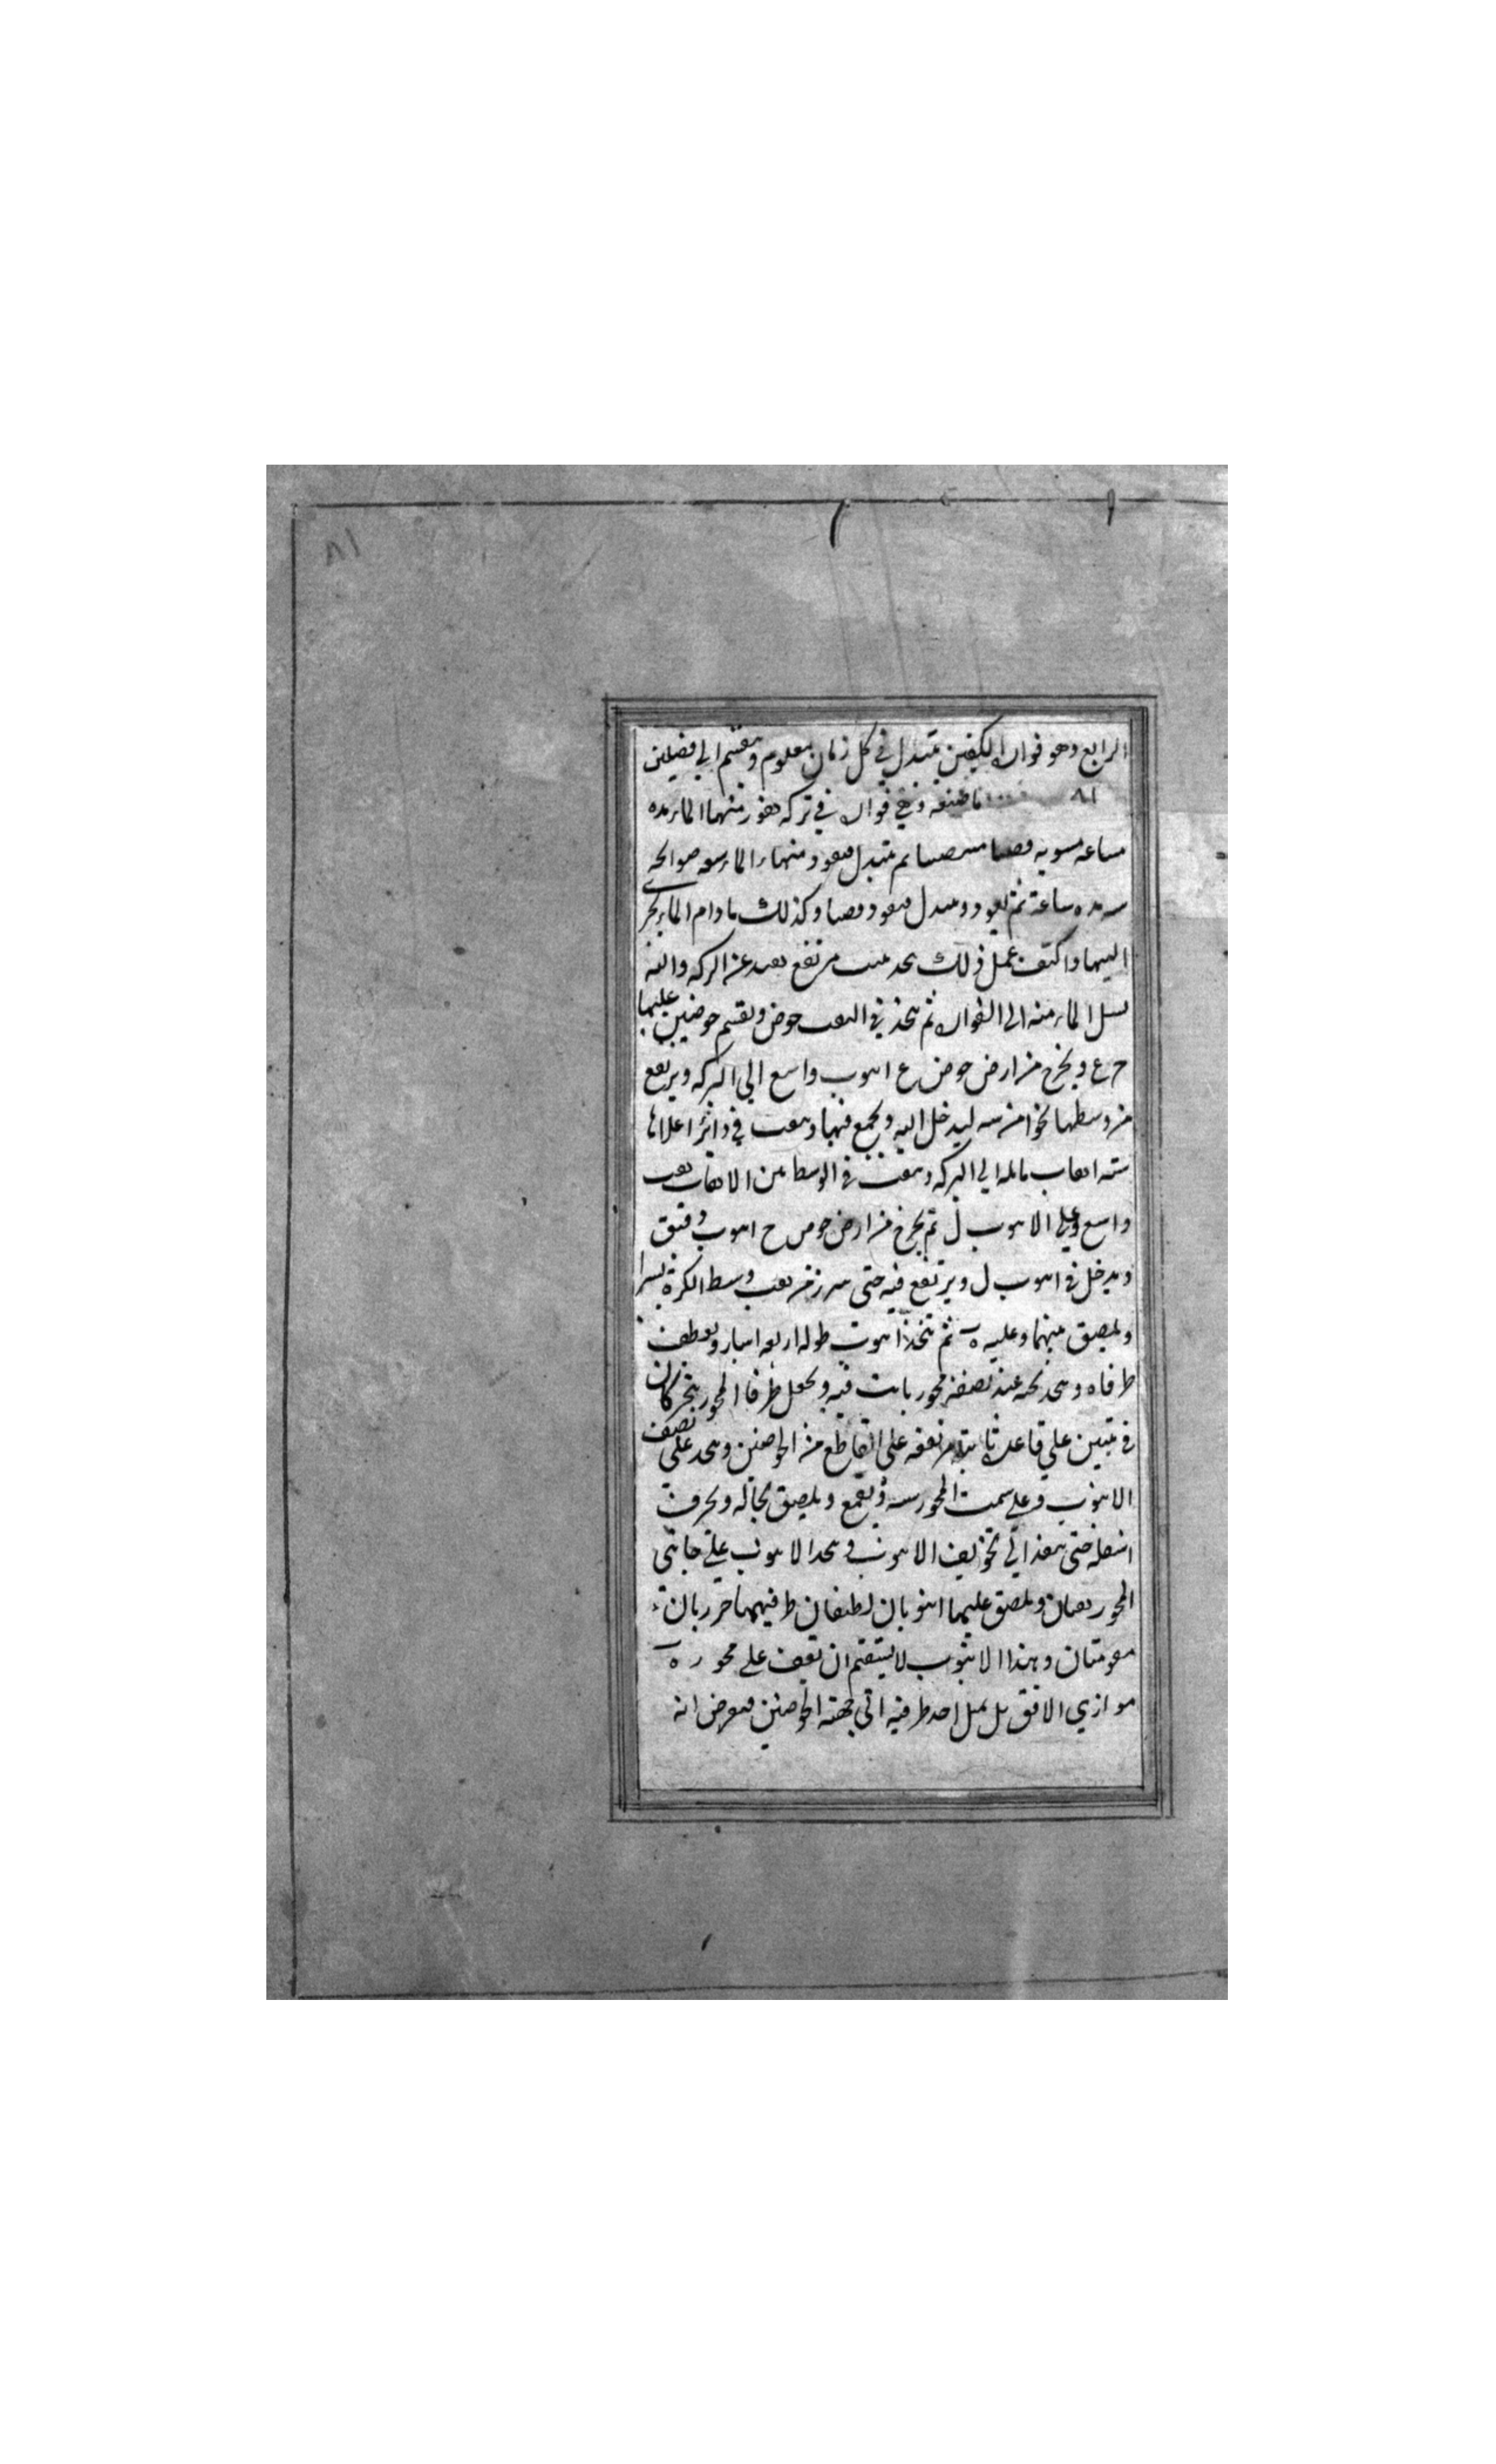 ٨١
الرابع وهو فواران لكيفين يتبدل في كل زمان معلوم وينقسم الي فصلين
٨١ ما صنعه وهي فواران في بركه يفور منهما الماء مده
ساعه مسويه ثم يتبدل فيفور منها الماء
مده ساعة ثم يعود ويتبدل فيفور وكذلك ما دام الماء يجري
اليها واكيف عمل ذلك يتخذ بيت مرتفع بعيد عن البركه واليه
يسيل الماء منه الى الفواران ثم يتخذ في البيت حوض ويقسم حوضين عليهما
ح ع ويخرج من ارض حوض ع انبوب واسع الي البركه ويرتفع
من وسطها نحوا من ليدخل اليه ويجمع فيها ويثقب في دائر اعلاها
سته اثقاب مايله الي البركه ويثقب في الوسط من الاثقاب ثقب
واسع وعلي الانبوب ل ثم يخرج من ارض حوض ح انبوب دقيق
ويدخل في انبوب ل ويرتفع فيه حتى يبرز من ثقب وسط الكرة يسيرا
ويلصق بينهما وعليه ثم يتخذ انبوب طوله اربعه اشبار ويعطف
طرفاه ويتخذ تحته عند نصفه محور ثابت فيه ويجعل طرفا المحور يتحركان
في بيتين علي قاعدة ثابتة مرتفعه على القاطع من الحوضين ويتخذ علي نصف
الانبوب وعلى سمت المحور قمع ويلصق بحاله ويحرق
اسفله حتى ينفذ الي تجويف الانبوب ويتخذ الانبوب علي جانبي
المحور ثقبان ويلصق عليهما انبوبان لطيفان طرفيهما
مفوتتان وهذا الانبوب لا يستقيم ان يقف على محور
موازي الافق بل يميل احد طرفيه الى جهة الحوضين فيعرض انه